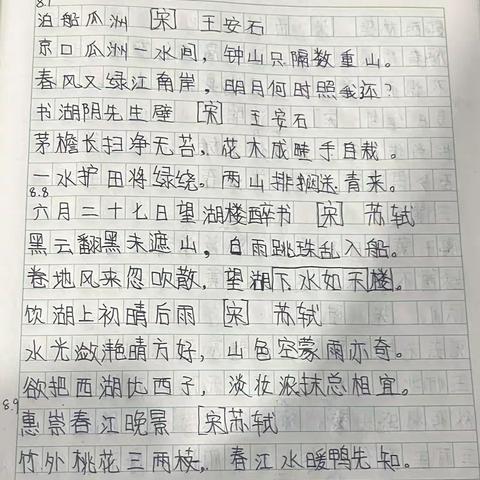 8.7
泊船瓜洲 [宋] 王安石
京口瓜洲一水间，钟山只隔数重山。
春风又绿江南岸，明月何时照我还？
书湖阴先生壁 [宋] 王安石
茅檐长扫净无苔，花木成畦手自栽。
一水护田将绿绕。两山排闼送青来。
8.8
六月二十七日望湖楼醉书 [宋] 苏轼
黑云翻黑未遮山，白雨跳珠乱入船。
卷地风来忽吹散，望湖下水如天楼。
饮湖上初晴后雨 [宋] 苏轼
水光潋滟晴方好，山色空蒙雨亦奇。
欲把西湖比西子，淡妆浓抹总相宜。
8.9
惠崇春江晚景 [宋]苏轼
竹外桃花三两枝，春江水暖鸭先知。